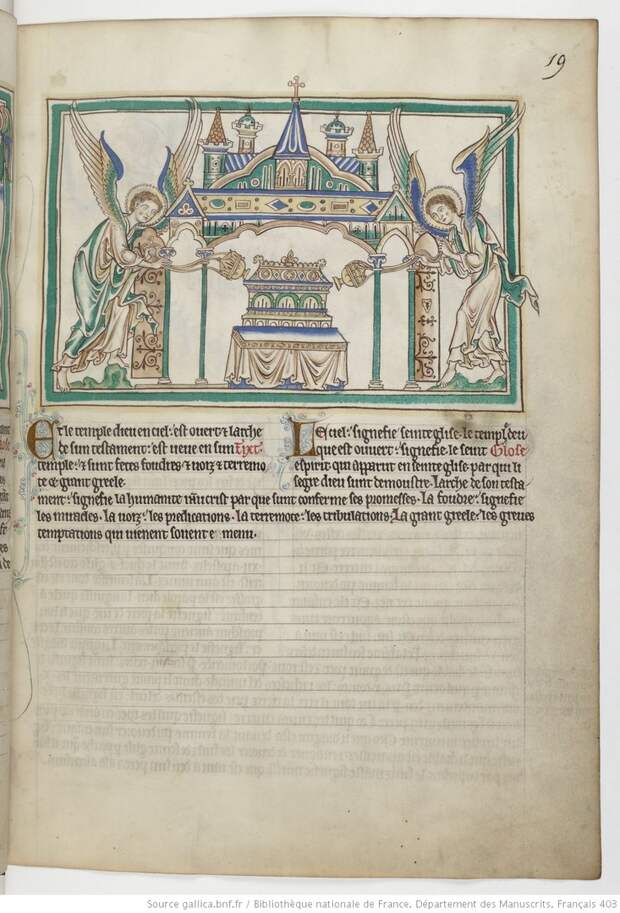 19
Et le temple dieu en ciel : est overt & larche
de sun testament : est veue en sun Tixt
temple : & sunt fetes foudres & voiz & terremo
te & grant greele.
Le ciel : signefie seinte glise. le temple deu
que est overt : signefie. le seint Glose
espirit qui aparut en seinte glise par qui li
segre dieu sunt demustre. Larche de son testa
ment : signefie la humanite crist par que sunt conferme ses promesses. La foudre : signefie
les miracles. la voiz : les predications. la terremote : les tribulations. La grant greele : les greves
temptations qui vienent sovent e menu.
Source gallica.bnf.fr / Bibliothèque nationale de France. Département des Manuscrits. Français 403